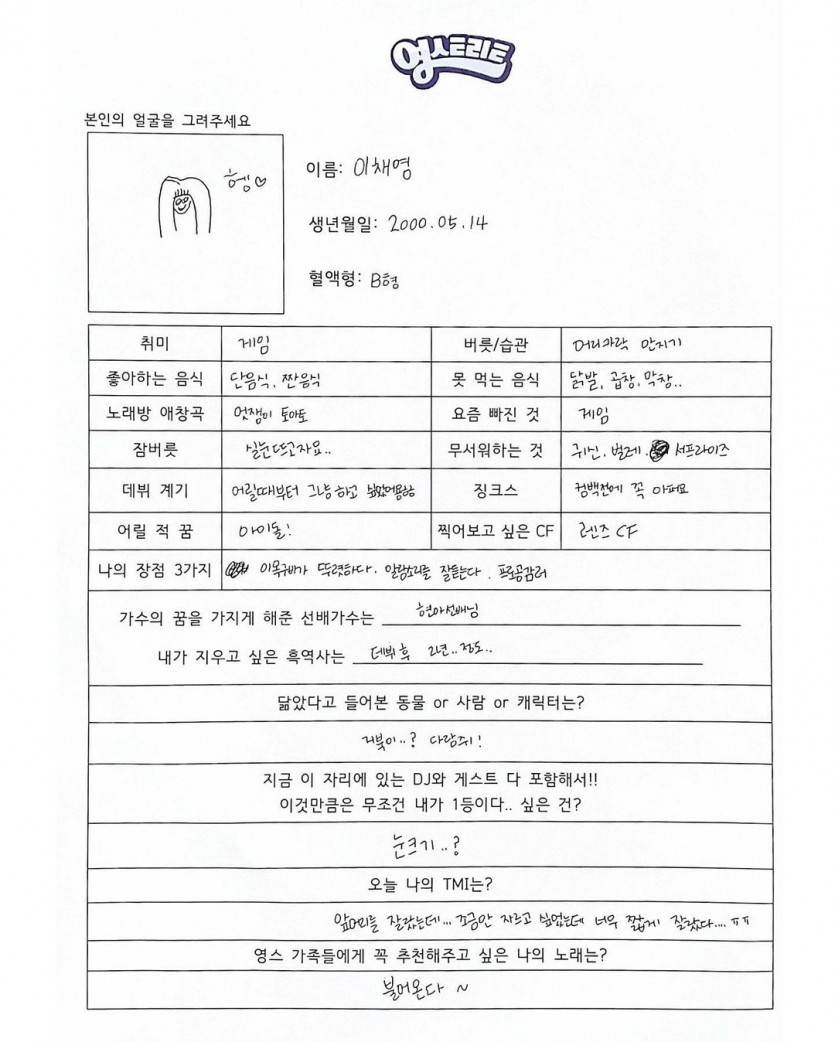 영스트리트
본인의 얼굴을 그려주세요
헹♡
이름: 이채영
생년월일: 2000.05.14
혈액형: B형
취미 게임 버릇/습관 머리카락 만지기
좋아하는 음식 단음식, 짠음식 못 먹는 음식 닭발, 곱창, 막창..
노래방 애창곡 멋쟁이 토마토 요즘 빠진 것 게임
잠버릇 실눈뜨고자요.. 무서워하는 것 귀신, 벌레, 서프라이즈
데뷔 계기 어릴때부터 그냥 하고 싶었어용 징크스 컴백전에 꼭 아파요
어릴 적 꿈 아이돌! 찍어보고 싶은 CF 렌즈 CF
나의 장점 3가지 이목구비가 뚜렷하다. 알람소리를 잘듣는다. 프로공감러
가수의 꿈을 가지게 해준 선배가수는 현아선배님
내가 지우고 싶은 흑역사는 데뷔 후 2년..정도..
닮았다고 들어본 동물 or 사람 or 캐릭터는?
거북이..? 다람쥐!
지금 이 자리에 있는 DJ와 게스트 다 포함해서!!
이것만큼은 무조건 내가 1등이다.. 싶은 건?
눈크기..?
오늘 나의 TMI는?
앞머리를 잘랐는데... 조금만 자르고 싶었는데 너무 짧게 잘랐다.... ㅠㅠ
영스 가족들에게 꼭 추천해주고 싶은 나의 노래는?
불어온다 ~